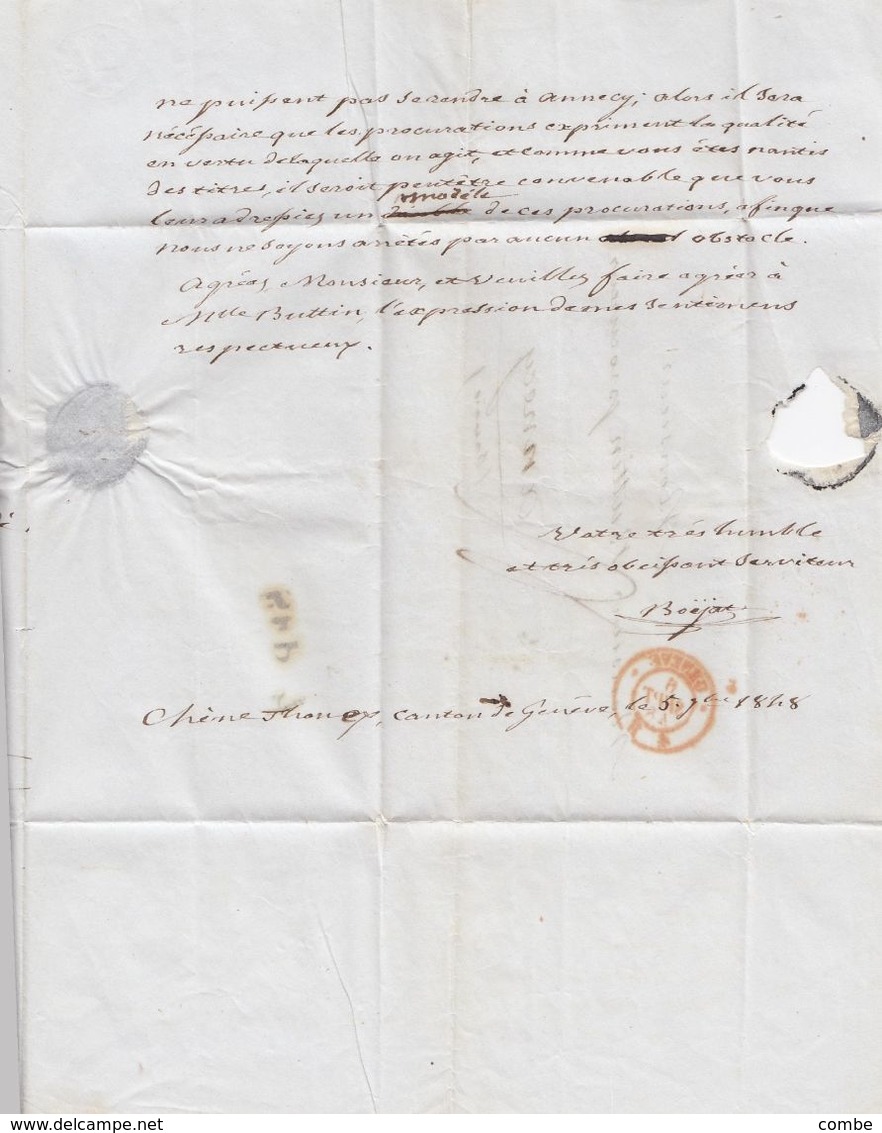 ne puissent pas se rendre à Annecy; alors il sera
nécéssaire que les procurations expriment la qualité
en vertu de laquelle on agit, et comme vous étes nantis
des titres, il seroit peutêtre convenable que vous
modèle
leur adressiez un de ces procurations, afin que
nous ne soyons arrêtés par aucun obstacle.
Agréez, Monsieur, et veuillez faire agréer à
Mlle Buttin, l'expression de mes sentimens
respectueux.
Votre trés humble
et trés obeissant serviteur
Boëjat
Chêne Thonex, canton de Genève, le 5. 9bre 1848
GENEVE
delcampe.net
combe